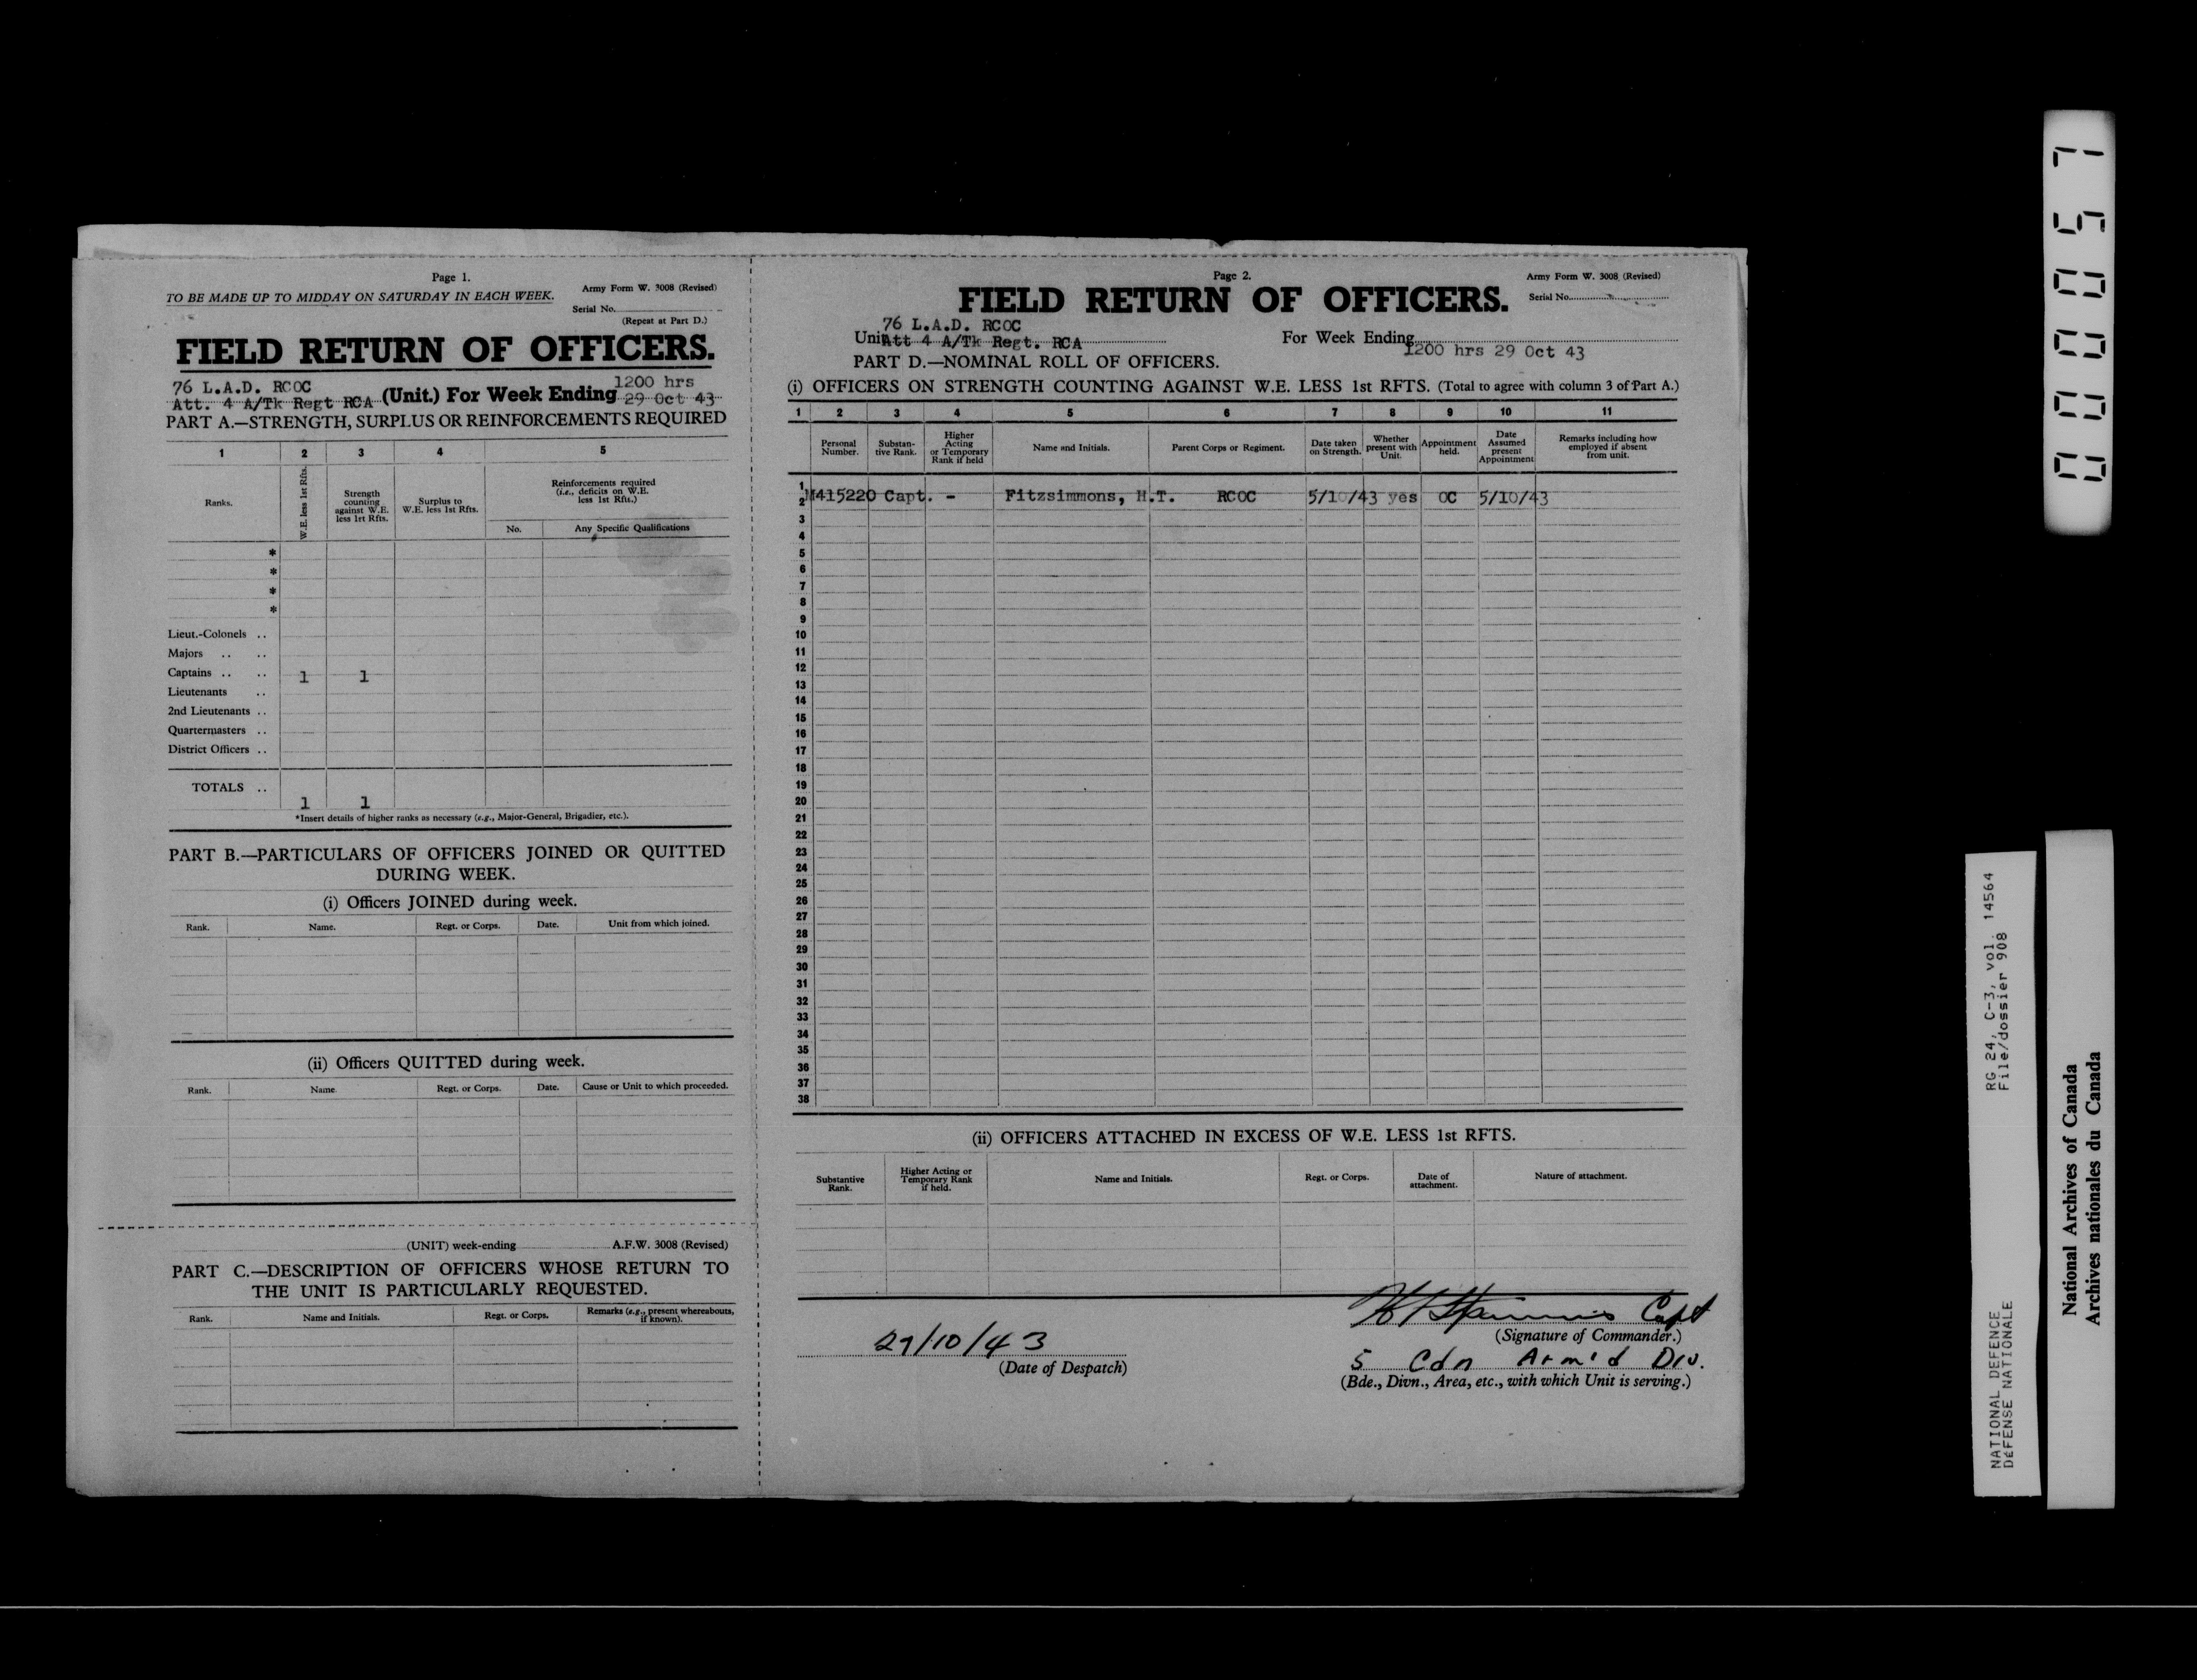 Page 1.
TO BE MADE UP TO MIDDAY ON SATURDAY IN EACH WEEK.
Army Form W. 3008 (Revised)
Serial No.
(Repeat at Part D.)
FIELD RETURN OF OFFICERS.
76 L.A.D. RCOC
Att. 4 A/Tk Regt RCA (Unit.) For Week Ending 1200 hrs 29 Oct 43
PART A.—STRENGTH, SURPLUS OR REINFORCEMENTS REQUIRED
1 2 3 4 5
Ranks. W.E. less 1st Rfts. Strength counting against W.E. less 1rt Rfts. Surplus to W.E. less 1st Rfts. Reinforcements required (i.e., deficits on W.E. less 1st Rfts.)
No. Any Specific Qualifications
*
*
*
*
Lieut.-Colonels ..
Majors .. ..
Captains .. .. 1 1
Lieutenants ..
2nd Lieutenants ..
Quartermasters ..
District Officers ..
TOTALS .. 1 1
*Insert details of higher ranks as necessary (e.g., Major-General, Brigadier, etc.).
PART B.—PARTICULARS OF OFFICERS JOINED OR QUITTED
DURING WEEK.
(i) Officers JOINED during week.
Rank. Name. Regt. or Corps. Date. Unit from which joined.
(ii) Officers QUITTED during week.
Rank. Name Regt. or Corps. Date. Cause or Unit to which proceeded.
(UNIT) week-ending A.F.W. 3008 (Revised)
PART C.—DESCRIPTION OF OFFICERS WHOSE RETURN TO
THE UNIT IS PARTICULARLY REQUESTED.
Rank. Name and Initials. Regt. or Corps. Remarks (e.g., present whereabouts, if known).
Page 2.
Army Form W. 3008 (Revised)
FIELD RETURN OF OFFICERS.
Serial No.
76 L.A.D. RCOC
Unit Att 4 A/Tk Regt. RCA
For Week Ending 1200 hrs 29 Oct 43
PART D.—NOMINAL ROLL OF OFFICERS.
(i) OFFICERS ON STRENGTH COUNTING AGAINST W.E. LESS 1st RFTS. (Total to agree with column 3 of Part A.)
1 2 3 4 5 6 7 8 9 10 11
Personal Number. Substan-tive Rank. Higher Acting or Temporary Rank if held Name and Initials. Parent Corps or Regiment. Date taken on Strength. Whether present with Unit. Appointment held. Date Assumed present Appointment Remarks including how employed if absent from unit.
1
2 M415220 Capt. - Fitzsimmons, H.T. RCOC 5/10/43 yes OC 5/10/43
3
4
5
6
7
8
9
10
11
12
13
14
15
16
17
18
19
20
21
22
23
24
25
26
27
28
29
30
31
32
33
34
35
36
37
38
(ii) OFFICERS ATTACHED IN EXCESS OF W.E. LESS 1st RFTS.
Substantive Rank. Higher Acting or Temporary Rank if held. Name and Initials. Regt. or Corps. Date of attachment. Nature of attachment.
Capt
(Signature of Commander.)
29/10/43
(Date of Despatch)
5 Cdn Arm'd Div.
(Bde., Divn., Area, etc., with which Unit is serving.)
000057
RG 24, C-3, vol. 14564
File/dossier 908
NATIONAL DEFENCE
DÉFENSE NATIONALE
National Archives of Canada
Archives nationales du Canada